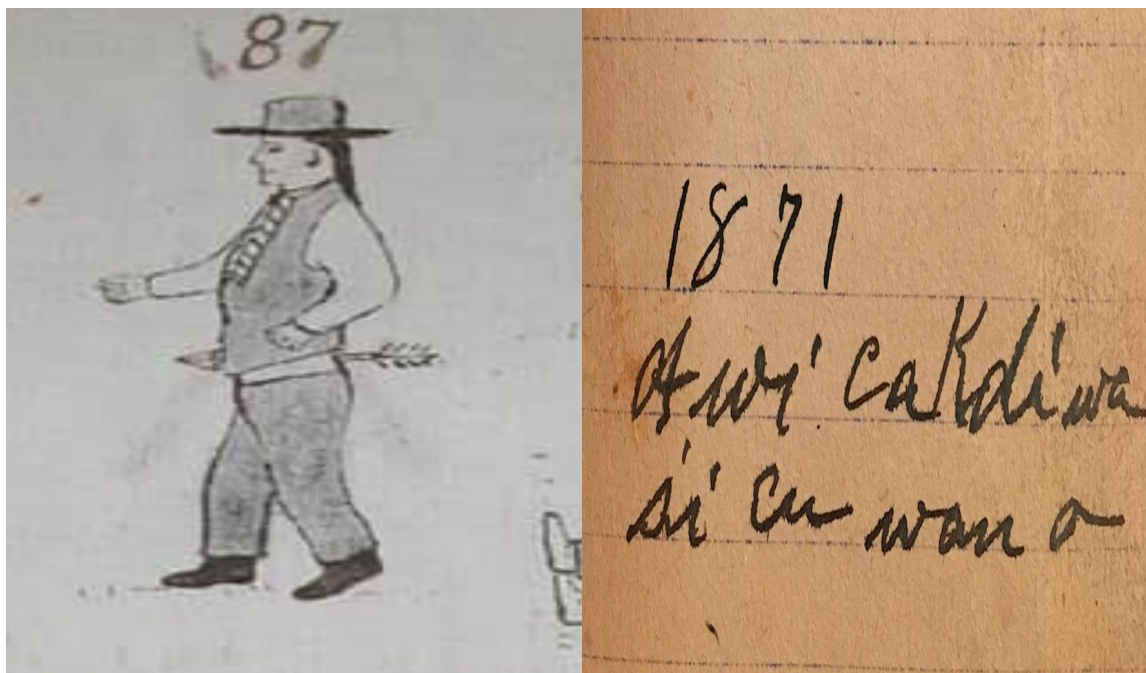 87
1871
A wi cakdi wa
si cu wan o